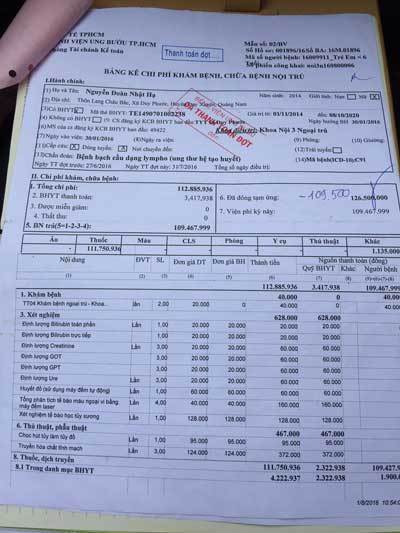 Y TẾ TPHCM
BỆNH VIỆN UNG BƯỚU TP.HCM
Phòng Tài chánh Kế toán
Thanh toán đợt....
Mẫu số: 02/BV
Số Hồ sơ: 001896/16Số BA: 16M.01896
Mã số người bệnh: 16009911_Trẻ Em < 6
BẢNG KÊ CHI PHÍ KHÁM BỆNH, CHỮA BỆNH NỘI TRÚ
I.Hành chính:
(1)Họ và Tên: Nguyễn Đoàn Nhật Hạ Năm sinh: 2014 Giới tính: Nam Nữ
(2)Địa chỉ: Thôn Lang Châu Bắc, Xã Duy Phước, Quảng Nam
(3)Có BHYT Mã thẻ BHYT: TE1490701002238 Giá trị từ: 03/11/2014 đến: 08/10/2020
(4)Không có BHYT (5) CS đăng ký KCB BHYT ban đầu: TYT Duy Phước Ngày hưởng BH 30/01/2016
(6)MS của cs đăng ký KCB BHYT ban đầu: 49422 Khoa điều trị: Khoa Nội 3 Ngoại trú
(7)Ngày vào viện: 30/01/2016 (8)Ngày ra viện: (9)Phòng: (10)Giường:
(11)Cấp cứu: Đúng tuyến: Nơi chuyển đến: (12)Trái tuyến:
(13)Chẩn đoán: Bệnh bạch cầu dạng lympho (ung thư hệ tạo huyết) (14)Mã bệnh(ICD-10):C91
Ngày DT đợt: 27/6/2016 Ngày TT đợt này: 31/7/2016 Tổng số ngày điều trị:
ĐÃ THANH TOÁN ĐỢT
II. Chi phí khám, chữa bệnh:
1. Tổng chi phí: 112.885.936
2. BHYT thanh toán: 3,417,938
6. Đã đóng tạm ứng: 126.500.000
-109.500
3. Được miễn giảm: 0
7. Viện phí kỳ này: 109.467.999
4. Thất thu: 0
5. BN trả(5=1-2-3-4): 109.467.999
Ăn Thuốc Máu CLS Phòng Y cụ Thủ thuật Khác
111.750.936 1.135.000
Nội dung ĐVT SL Đơn giá DT Đơn giá BH Thành tiền Nguồn thanh toán (đồng)
Quỹ BHYT Khác Người bệnh
(1) (2) (3) (4) (5) (6) (7) (8)
112.885.936 3.417.938 0 109.467.999
1. Khám bệnh 40.000 0 40.000
TT04 Khám bệnh ngoại trú - Khoa... lần 2,00 20.000 0 40.000 0 0 40.000
3. Xét nghiệm 628.000 628.000
Định lượng Bilirubin toàn phần Lần 1,00 20.000 20.000 20.000 20.000
Định lượng Bilirubin trực tiếp Lần 1,00 20.000 20.000 20.000 20.000
Định lượng Creatinine Lần 3,00 20.000 20.000 60.000 60.000
Định lượng GOT Lần 3,00 20.000 20.000 60.000 60.000
Định lượng GPT Lần 3,00 20.000 20.000 60.000 60.000
Định lượng Ure Lần 3,00 20.000 20.000 60.000 60.000
Huyết đồ (sử dụng máy đếm tự động) Lần 1,00 60.000 60.000 60.000 60.000
Tổng phân tích tế bào máu ngoại vi bằng máy đếm laser Lần 4,00 40.000 40.000 160.000 160.000
Xét nghiệm tế bào học tủy xương Lần 1,00 128.000 128.000 128.000 128.000
6. Thủ thuật, phẫu thuật 467.000 467.000
Chọc hút tủy làm tủy đồ Lần 1,00 95.000 95.000 95.000 95.000
Truyền hóa chất tĩnh mạch Lần 3,00 124.000 124.000 372.000 372.000
8. Thuốc, dịch truyền 111.750.936 2.322.938
8.1 Trong danh mục BHYT 4.222.937 2.322.938
1/8/2016